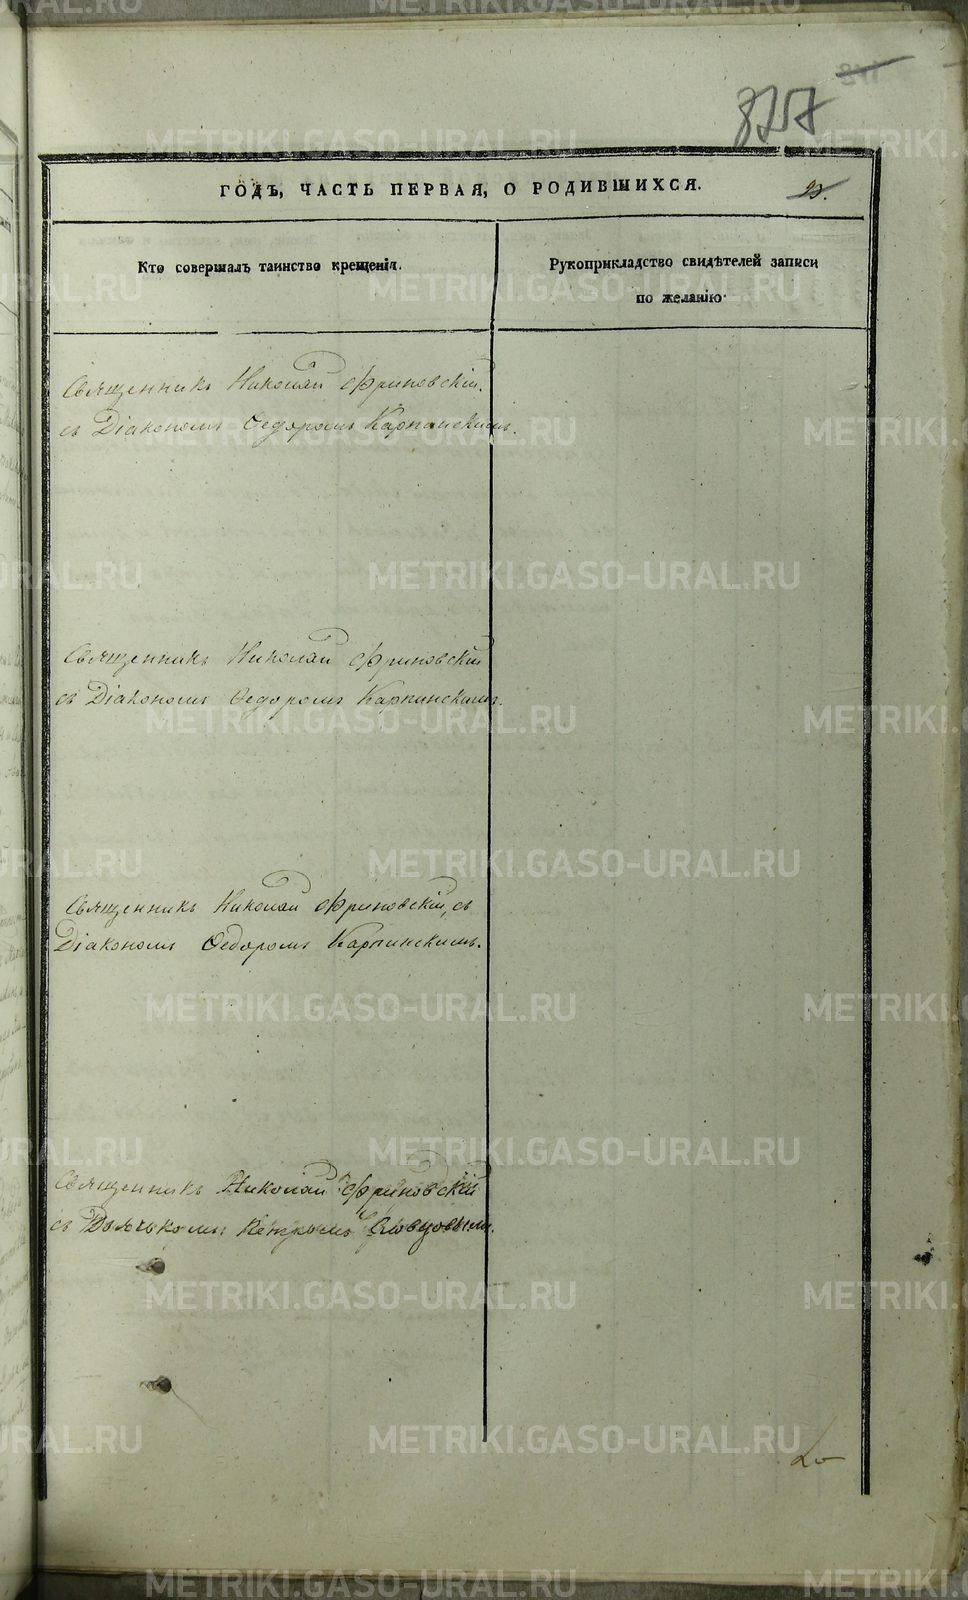 875
ГОДЪ, ЧАСТЬ ПЕРВАЯ, О РОДИВШИХСЯ.
23.
Кто совершалъ таинство крещенія.
Рукоприкладство свидѣтелей записи
по желанію
Священникъ Николай Фриновскій.
съ Діакономъ Ѳедоромъ Карпинскимъ.
Священникъ Николай Фриновскій
съ Діакономъ Ѳедоромъ Карпинскимъ.
Священникъ Николай Фриновскій, съ
Діакономъ Ѳедоромъ Карпинскимъ.
Священникъ Николай Фриновскій
съ Дьячкомъ Петромъ Словцовымъ.
METRIKI.GASO-URAL.RU